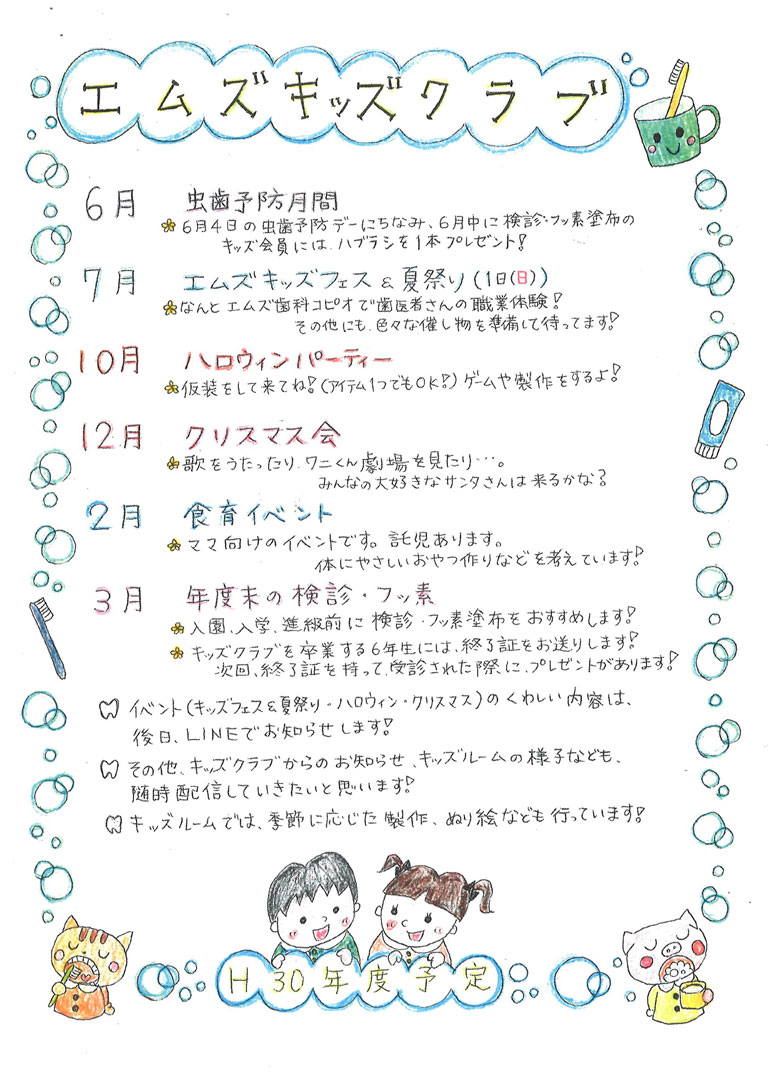 エムズキッズクラブ
6月 虫歯予防月間
6月4日の虫歯予防デーにちなみ、6月中に検診・フッ素塗布の
キッズ会員には、ハブラシを1本プレゼント!
7月 エムズキッズフェス&夏祭り(1日(日))
なんとエムズ歯科コピオで歯医者さんの職業体験!
その他にも、色々な催し物を準備して待ってます!
10月 ハロウィンパーティー
仮装をして来てね!(アイテム1つでもOK!)ゲームや製作をするよ!
12月 クリスマス会
歌をうたったり、ワニくん劇場を見たり…。
みんなの大好きなサンタさんは来るかな?
2月 食育イベント
ママ向けのイベントです。託児あります。
体にやさしいおやつ作りなどを考えています!
3月 年度末の検診・フッ素
入園、入学、進級前に検診・フッ素塗布をおすすめします!
キッズクラブを卒業する6年生には、終了証をお送りします!
次回、終了証を持って、受診された際に、プレゼントがあります!
イベント(キッズフェス&夏祭り・ハロウィン・クリスマス)のくわしい内容は、
後日、LINEでお知らせします!
その他、キッズクラブからのお知らせ、キッズルームの様子なども、
随時配信していきたいと思います!
キッズルームでは、季節に応じた製作、ぬり絵なども行っています!
H30年度予定